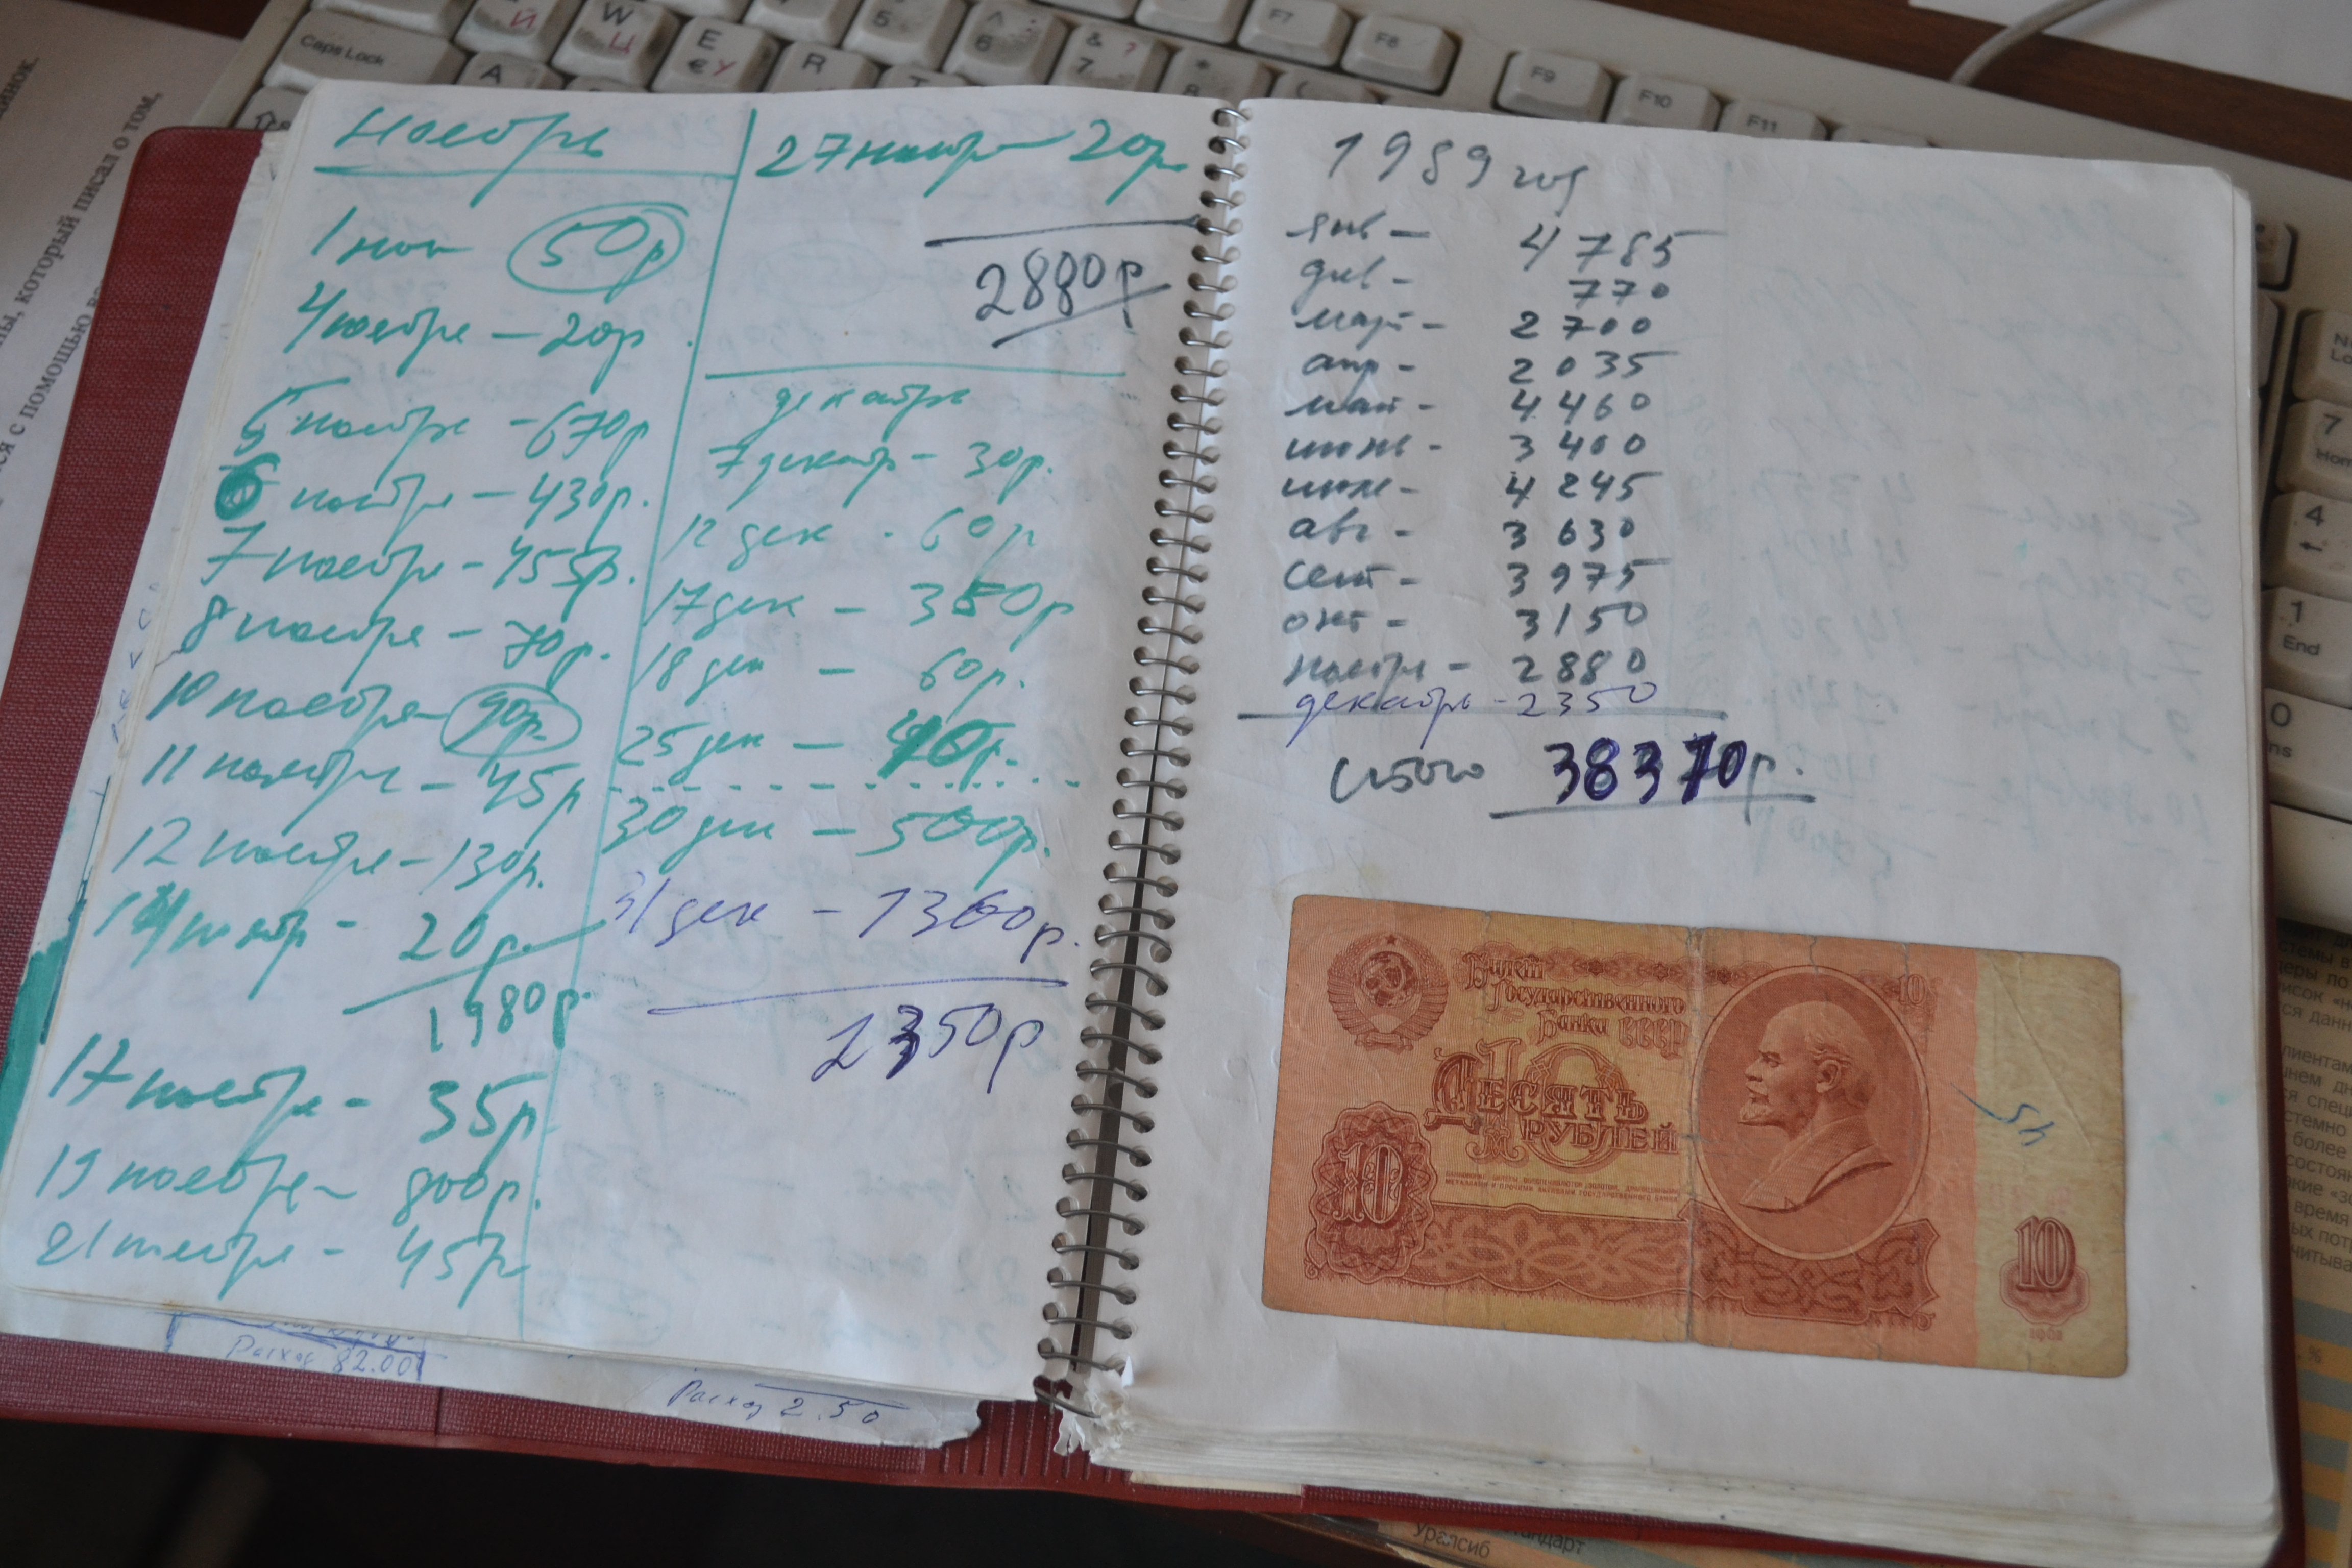 Ноябрь
1 ноя 50р
4 ноября - 20р.
5 ноября - 670р
6 ноября - 430р.
7 ноября - 455р.
8 ноября - 70р.
10 ноября - 90р.
11 ноября - 45р
12 ноября - 130р.
14 ноябр - 20р.
1980р.
17 ноября - 35р
19 ноября - 800р.
21 ноября - 45р
27 ноября - 20р
2880р
декабрь
7 декабр - 30р.
12 дек - 60р
17 дек - 350р
18 дек - 60р.
25 дек -
30 дек - 500р.
31 дек - 1300р.
2350р
1989 год
янв - 4785
фев - 770
март - 2700
апр - 2035
май - 4460
июнь - 3400
июль - 4245
авг - 3630
сент - 3975
окт - 3150
ноябрь - 2880
декабрь - 2350
Итого 38370р.
Билет
Государственного
Банка СССР
10
Десять
рублей
10
10
1961
45
Расход 82.00
Расход 2.50
который писал о том,
с помощью
Caps Lock
W Ц
Й
E € У
R
A
5
^ 6
& 7 ?
* 8
F7
F8
F9
F10
F11
7
4
1
End
0
Уралсиб